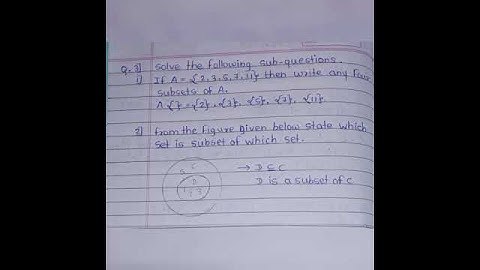 Q.3] Solve the following sub-questions.
1) If A = {2,3,5,7,11} then write any four
subsets of A.
A {} = {2}, {3}, {5}, {7}, {11}
2) from the figure given below state which
set is subset of which set.
C
D
→ D ⊆ C
D is a subset of C